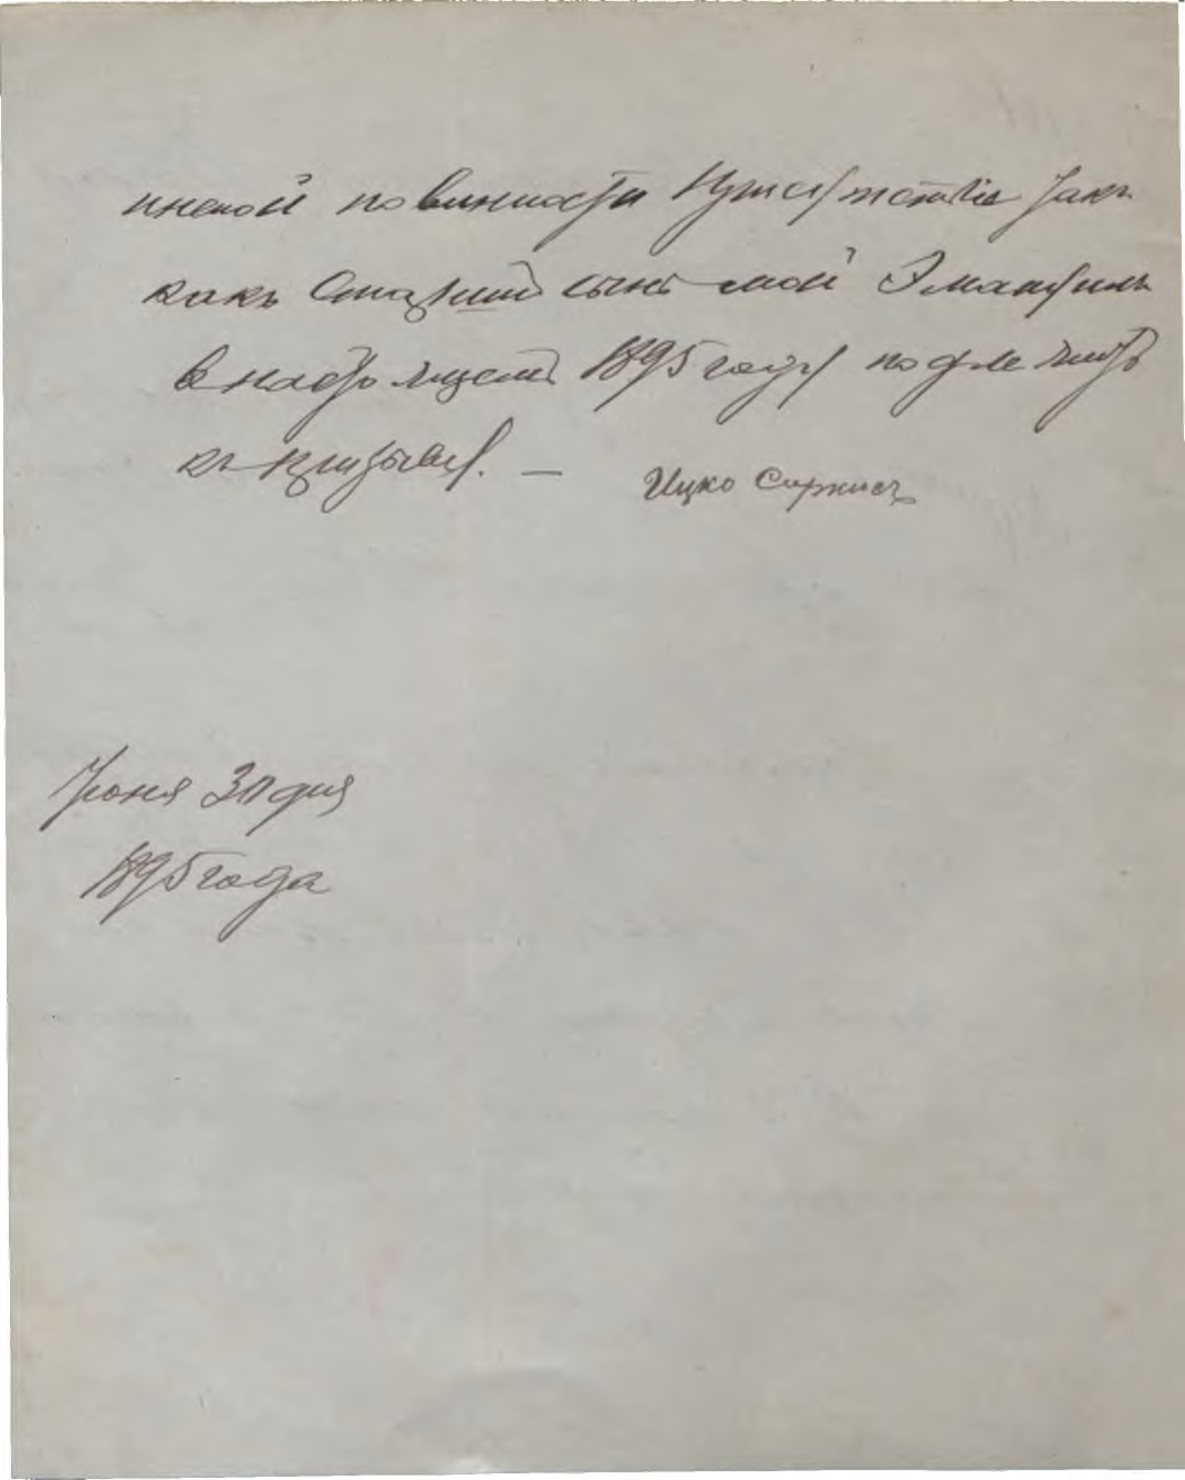 инской повинности Присутствие такъ
какъ Старший сынъ мой Эмануилъ
в настоящемъ 1895 году подлежитъ
къ призыву. —
Ицко Сиркисъ
Июня 30 дня
1895 года